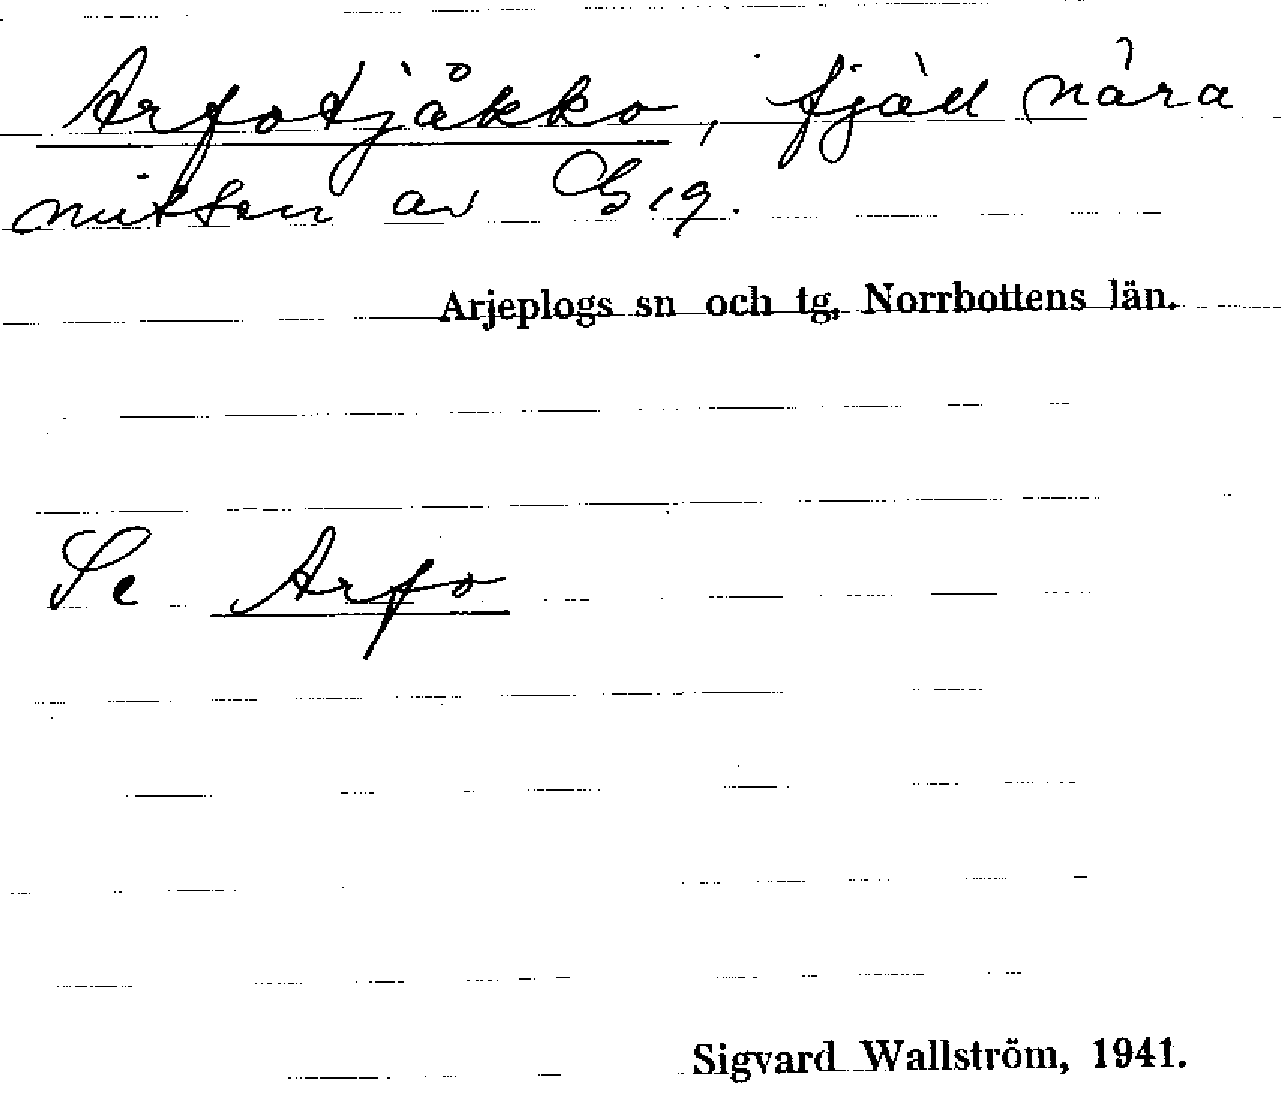 Arfotjåkko, fjäll nära
mitten av G 19.
Arjeplogs sn och tg, Norrbottens län.
Se Arfo
Sigvard Wallström, 1941.